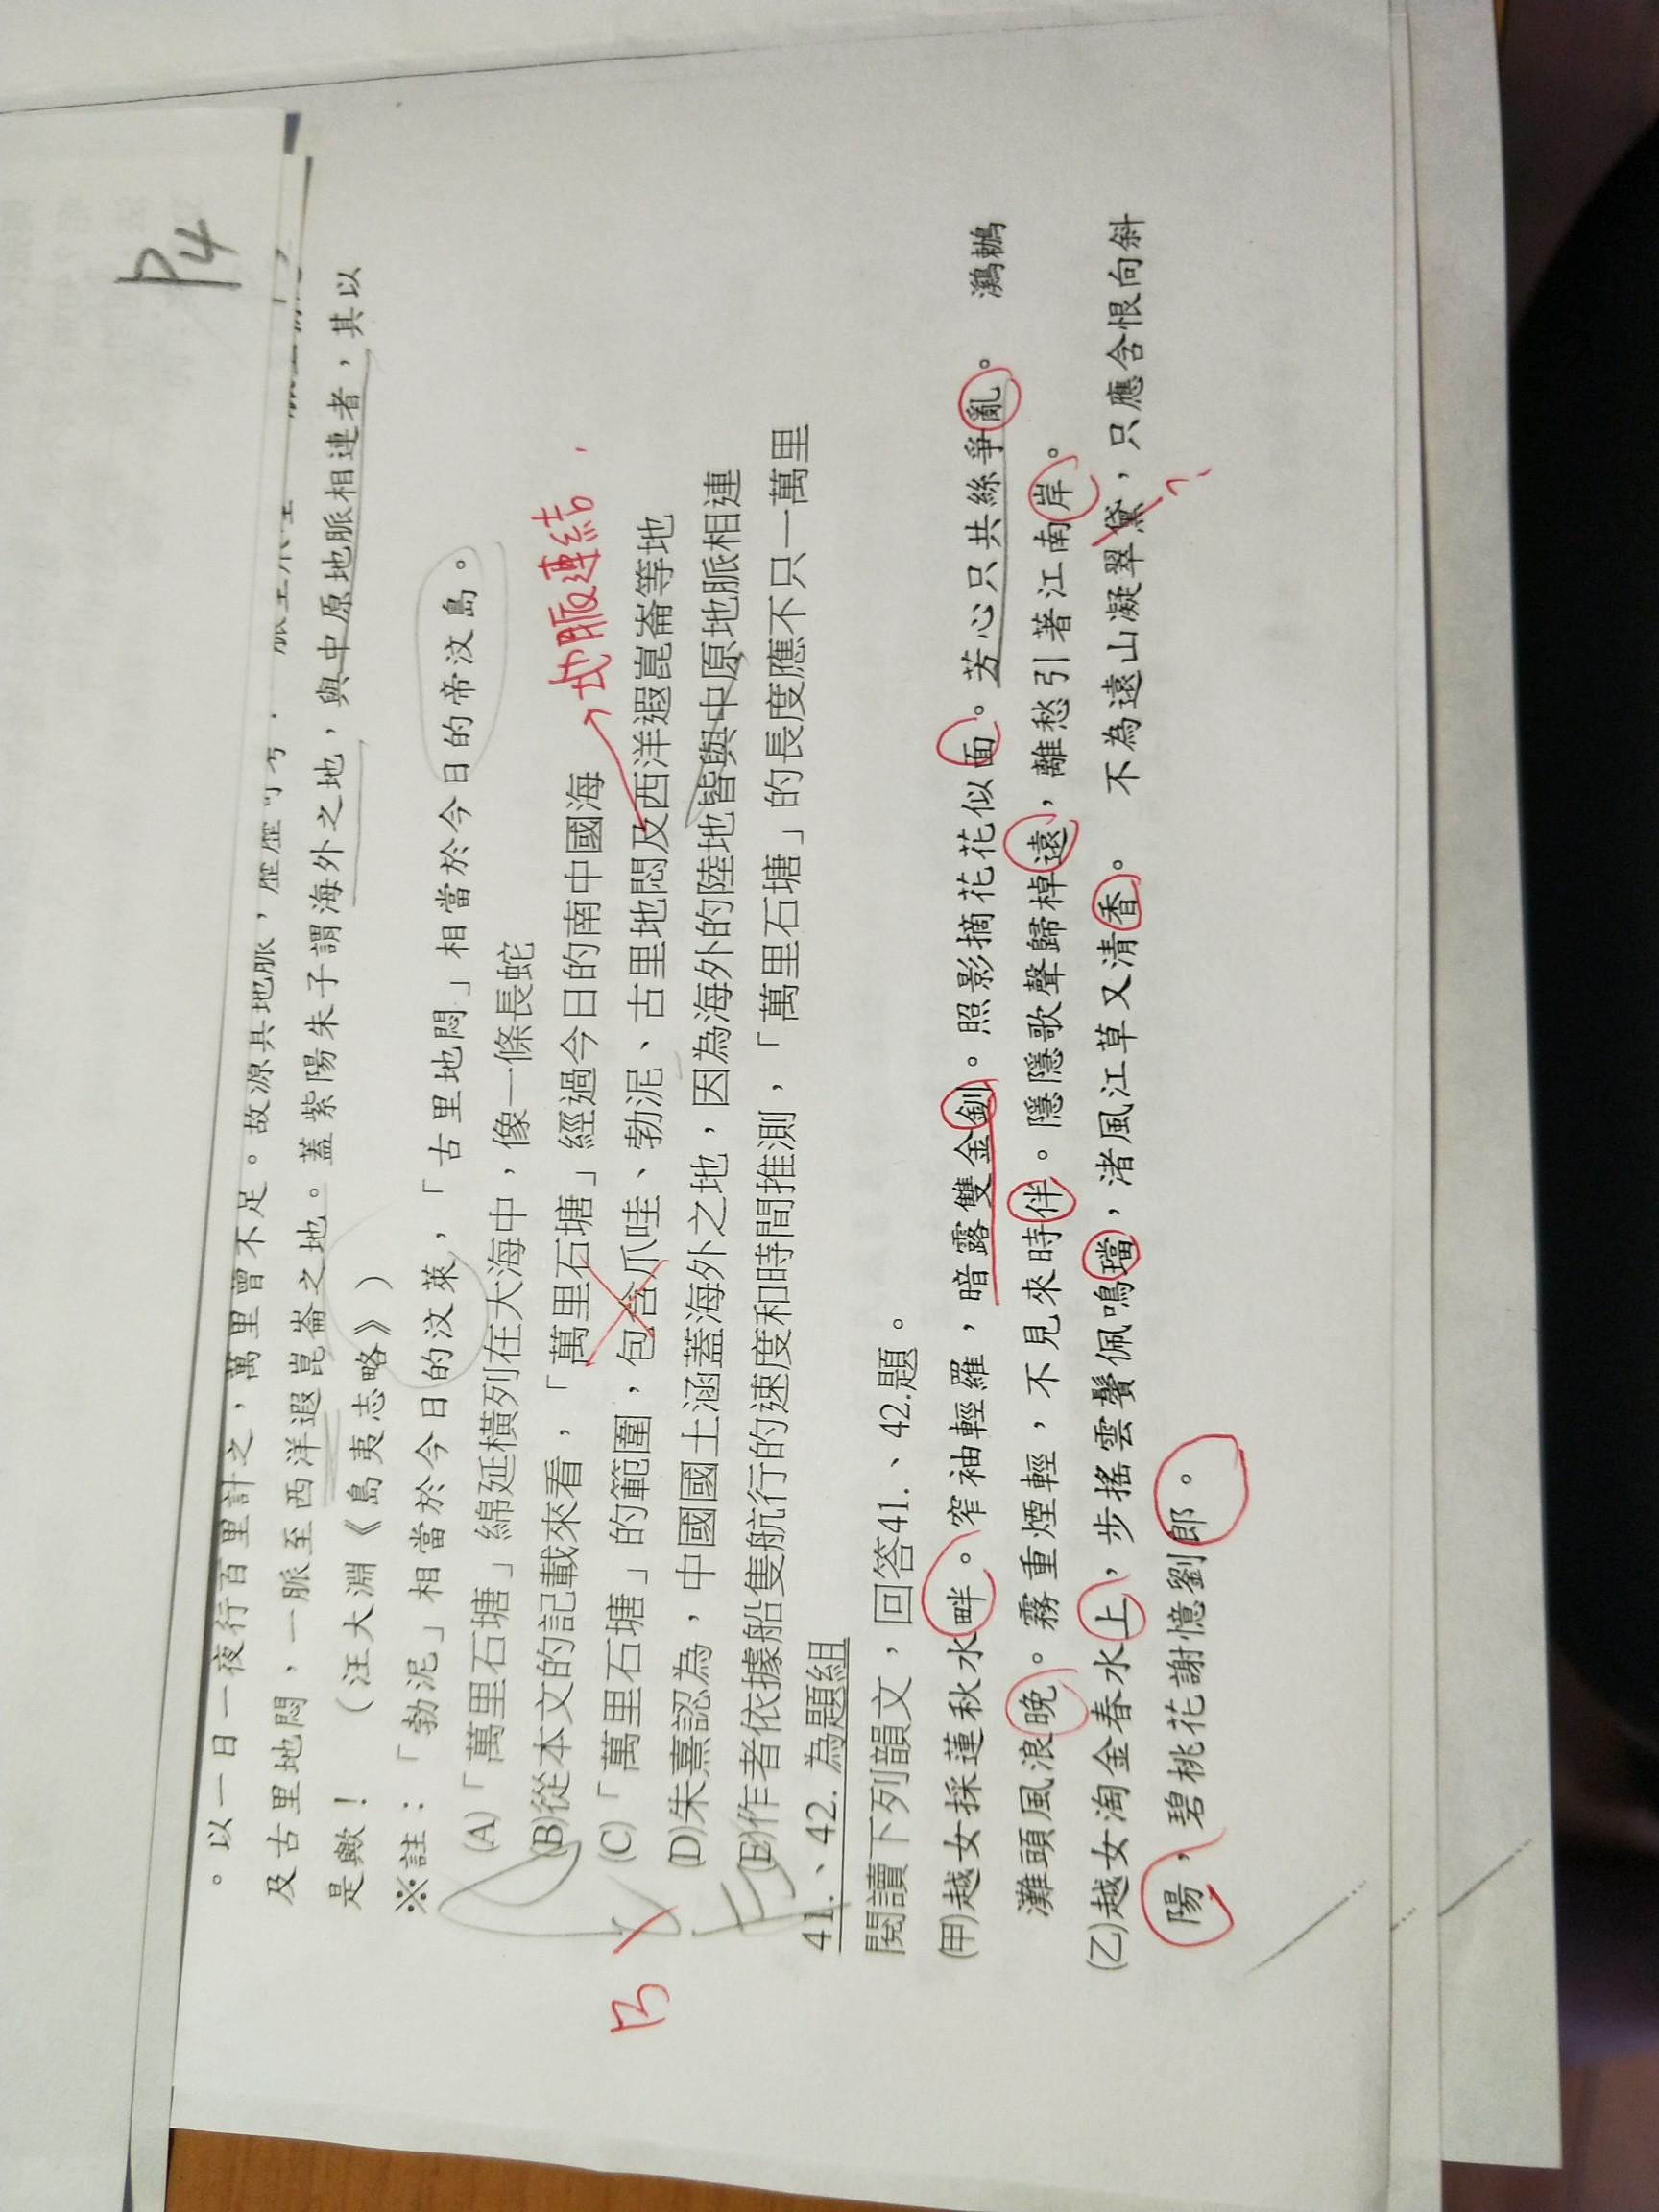 P4
。以一日一夜行百里計之，萬里曾不足。故源其地脈，歷歷可考．
及古里地悶，一脈至西洋遐崑崙之地。蓋紫陽朱子謂海外之地，與中原地脈相連者，其以
是歟！　（汪大淵《島夷志略》）
※註：「勃泥」相當於今日的汶萊，「古里地悶」相當於今日的帝汶島。
(A)「萬里石塘」綿延橫列在大海中，像一條長蛇
(B)從本文的記載來看，「萬里石塘」經過今日的南中國海
地脈連結
(C)「萬里石塘」的範圍，包含爪哇、勃泥、古里地悶及西洋遐崑崙等地
(D)朱熹認為，中國國土涵蓋海外之地，因為海外的陸地皆與中原地脈相連
(E)作者依據船隻航行的速度和時間推測，「萬里石塘」的長度應不只一萬里
41.、42. 為題組
閱讀下列韻文，回答41.、42.題。
(甲)越女採蓮秋水畔。窄袖輕羅，暗露雙金釧。照影摘花花似面。芳心只共絲爭亂。　鸂鶒
灘頭風浪晚。霧重煙輕，不見來時伴。隱隱歌聲歸棹遠，離愁引著江南岸。
(乙)越女淘金春水上，步搖雲鬢佩鳴璫，渚風江草又清香。　不為遠山凝翠黛，只應含恨向斜
陽，碧桃花謝憶劉郎。